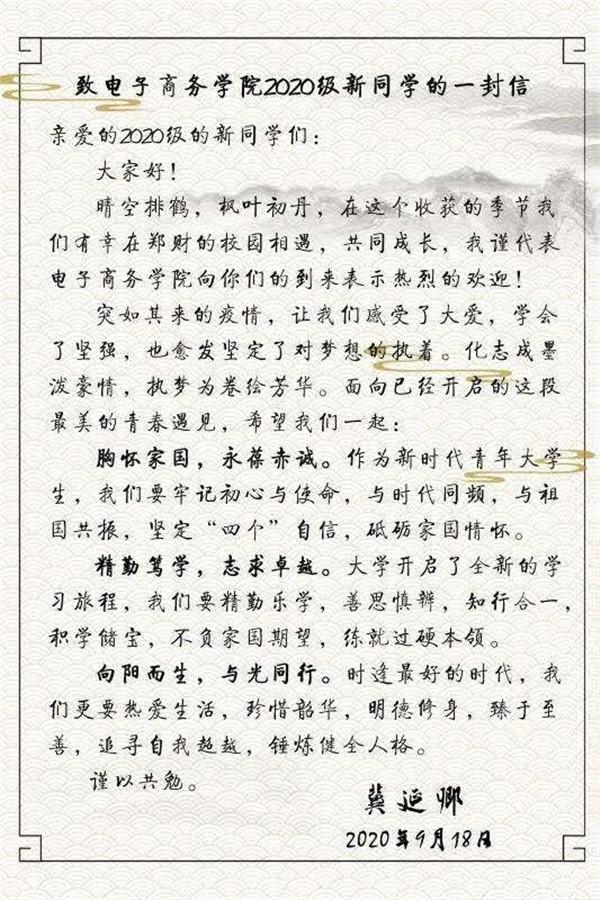 致电子商务学院2020级新同学的一封信
亲爱的2020级的新同学们：
大家好！
晴空排鹤，枫叶初丹，在这个收获的季节我
们有幸在郑财的校园相遇，共同成长，我谨代表
电子商务学院向你们的到来表示热烈的欢迎！
突如其来的疫情，让我们感受了大爱，学会
了坚强，也愈发坚定了对梦想的执着。化志成墨
泼豪情，执梦为卷绘芳华。面向已经开启的这段
最美的青春遇见，希望我们一起：
胸怀家国，永葆赤诚。作为新时代青年大学
生，我们要牢记初心与使命，与时代同频，与祖
国共振，坚定“四个”自信，砥砺家国情怀。
精勤笃学，志求卓越。大学开启了全新的学
习旅程，我们要精勤乐学，善思慎辨，知行合一，
积学储宝，不负家国期望，练就过硬本领。
向阳而生，与光同行。时逢最好的时代，我
们更要热爱生活，珍惜韶华，明德修身，臻于至
善，追寻自我超越，锤炼健全人格。
谨以共勉。
冀延卿
2020年9月18日